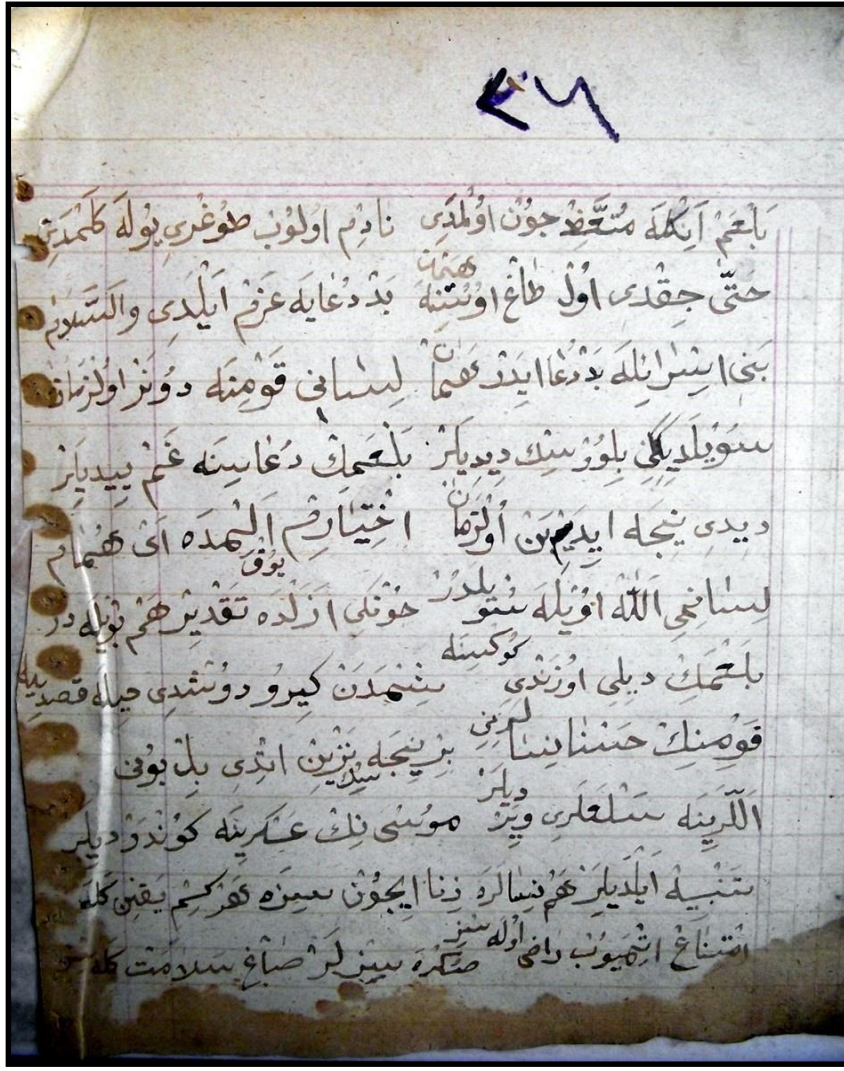 ٢٦
بلعم آنكله متعظ چون اولمدى نادم اولوب طوغرى يوله كلمدى
حتّى چقدى اول طاغ اوستنه همان بد دعايه عزم ايلدى والسّلام
بنى اسرائله بد دعا ايدر همان لسانى قومنه دونر اولزمان
سويلديكى بلورسك ديديلر بلعمك دعاسنه غم ييديلر
ديدى نيجه ايديم بن اولزمان اختيارم يوق المده اى همام
لسانمى الله اويله سويلدر چونكى ازلده تقدير هم بويله در
بلعمك ديلى اوزندى كوكسنه بشمدن كيرو دوشدى حيله قصدينه
قومنك حسنا نسالرينى بر نيجه سنك تزيين اتدى بل بونى
اللّرينه سلعلرى ويرديلر موسى نك عسكرينه كوندرديلر
تنبيه ايلديلر هم نسالره زنا ايچون سيزه هر كيم يقين كله
امتناع اتميوب راضى اوله سز صكره سيزلر صباغ سلامت كله سز